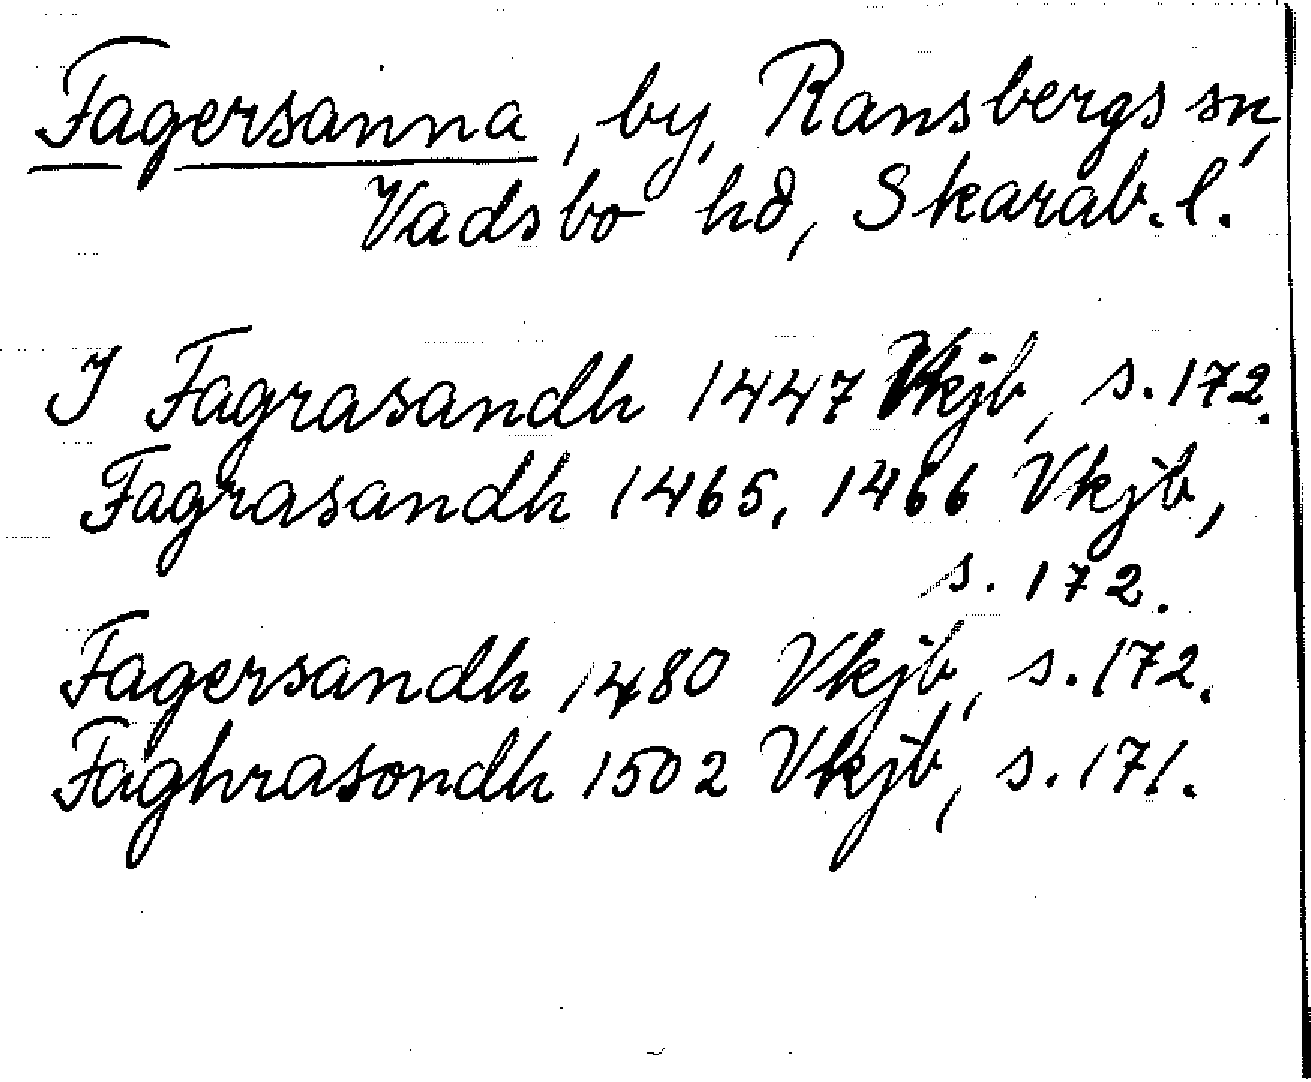 Fagersanna, by, Ransbergs sn,
Vadsbo hd, Skarab. l.
I Fagrasandh 1447 Vkjb, s. 172.
Fagrasandh 1465, 1466 Vkjb,
s. 172.
Fagersandh 1480 Vkjb, s. 172.
Faghrasondh 1502 Vkjb, s. 171.